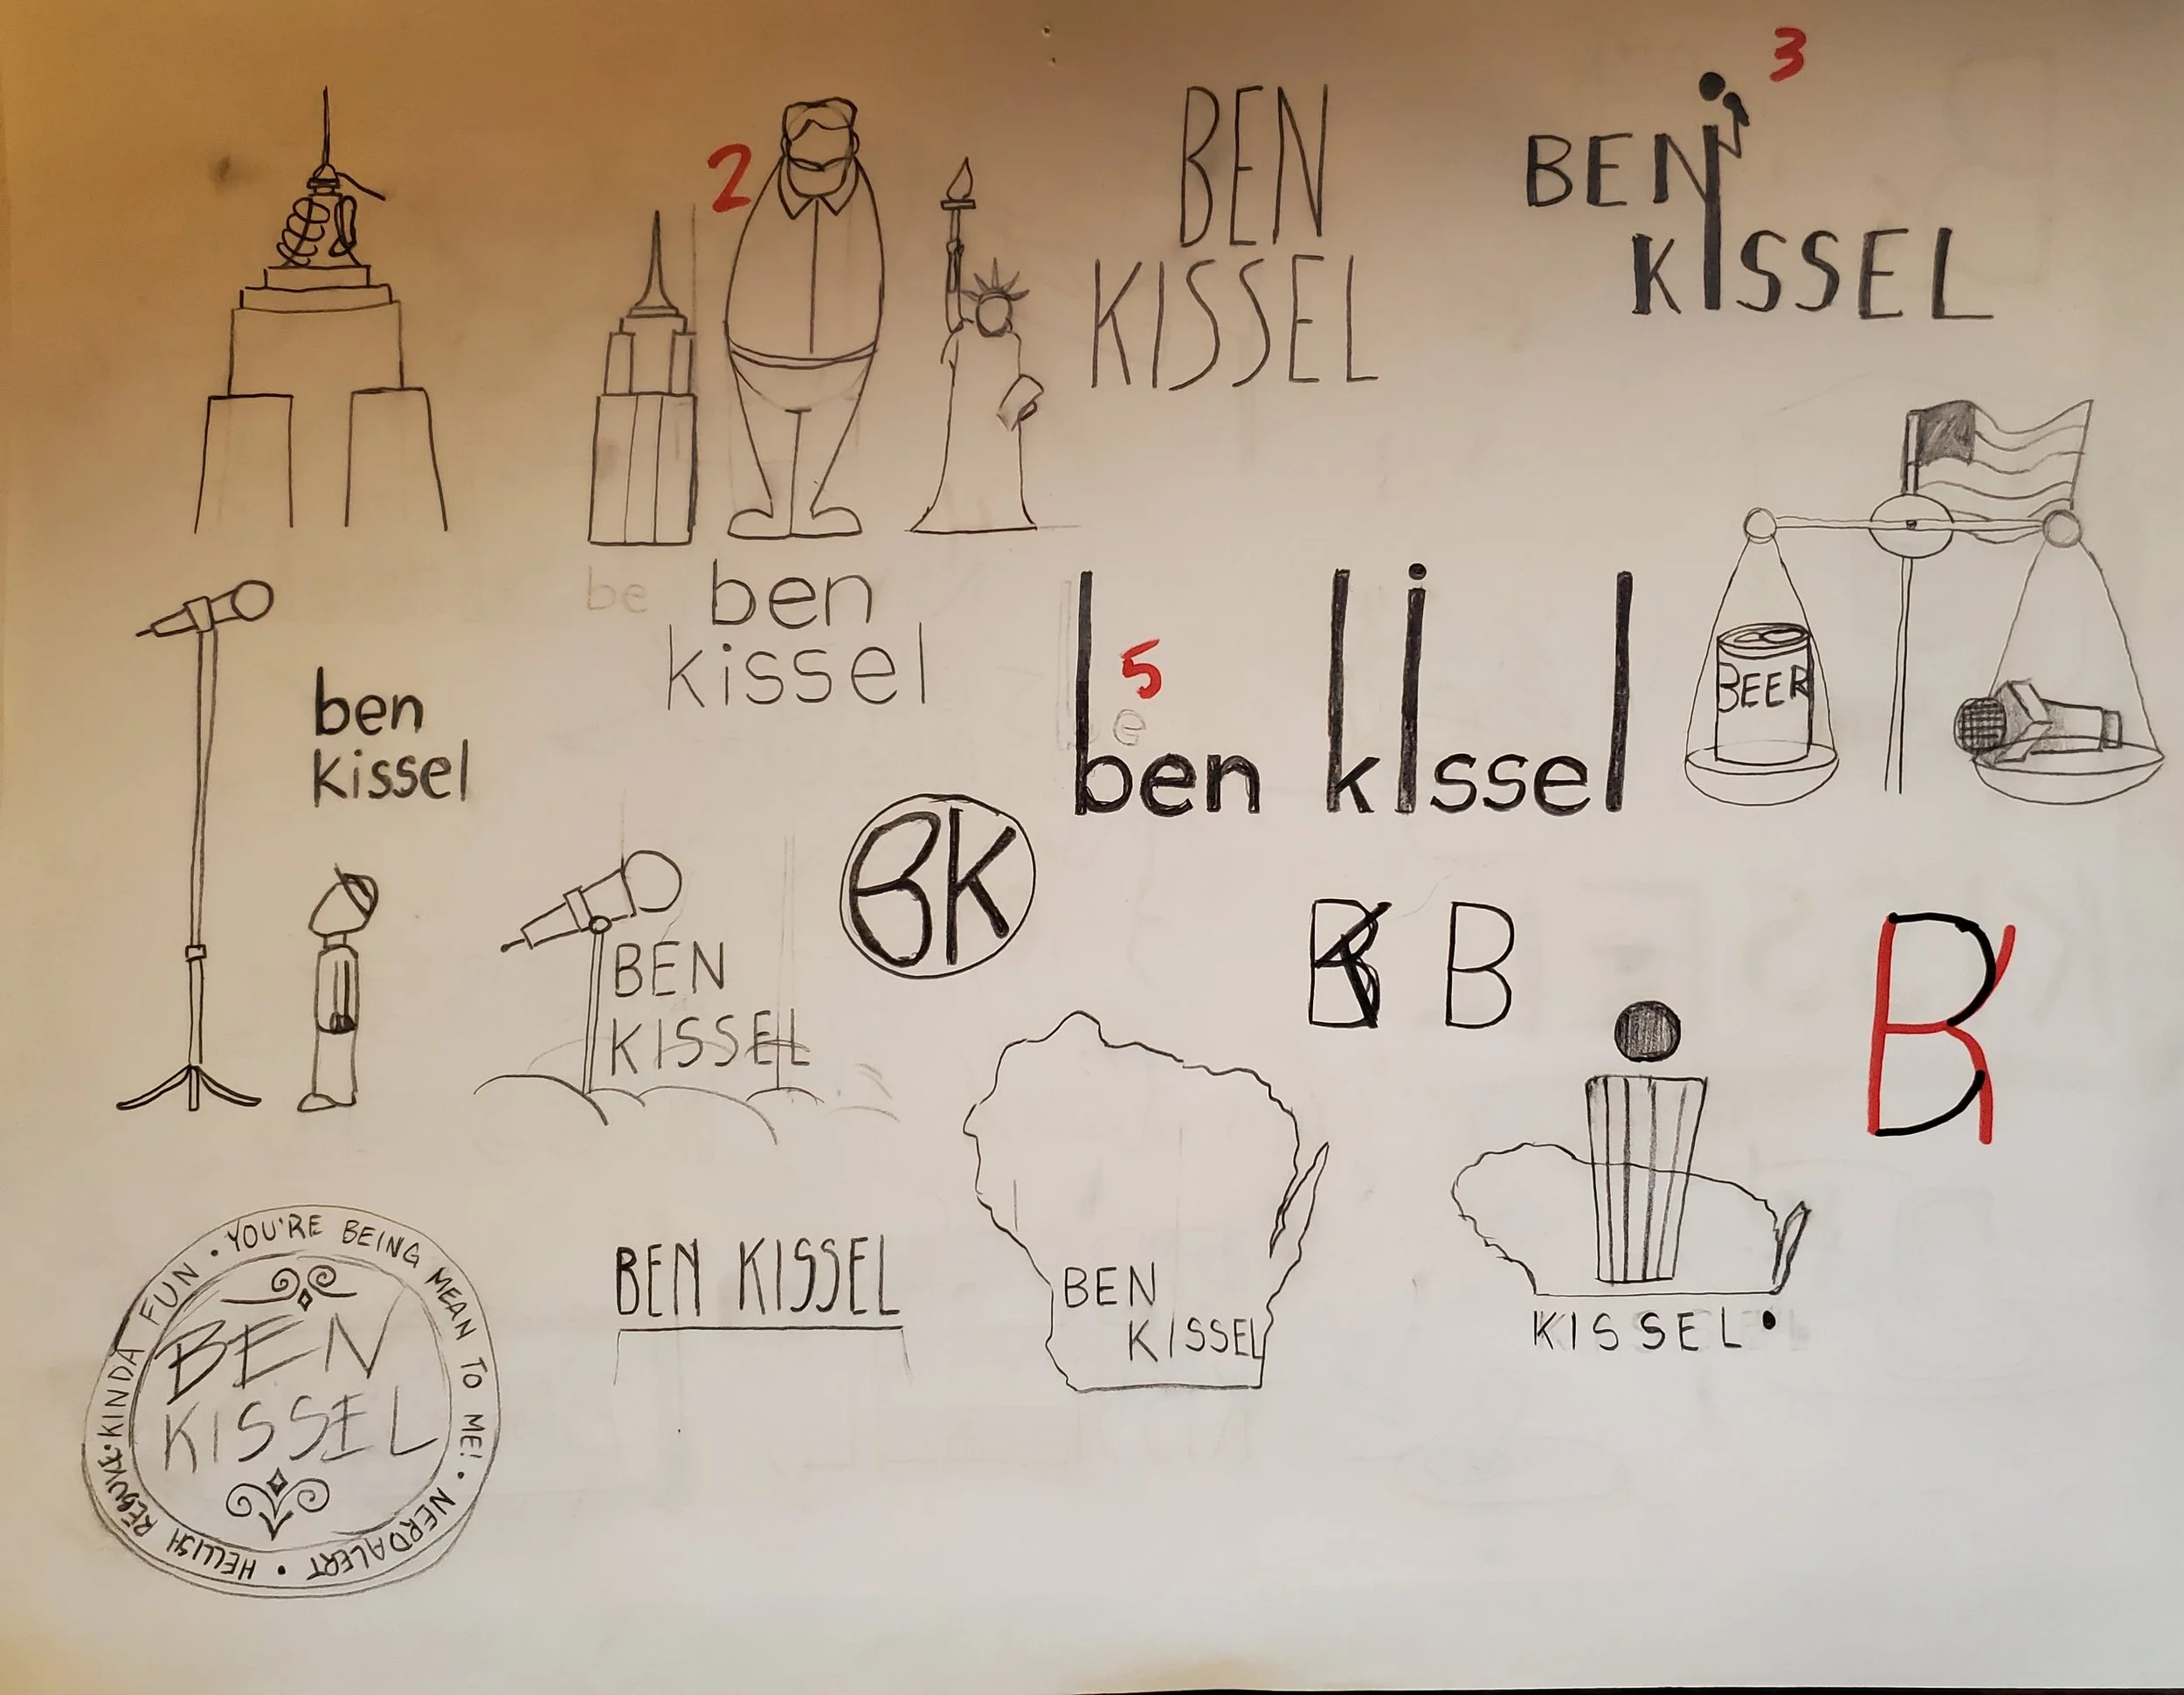 2
BEN
KISSEL
3
BEN
KISSEL
be
ben
kissel
ben
kissel
5
be
ben kissel
BEER
BK
BEN
KISSEL
BK
B
BK
YOU'RE BEING MEAN TO ME! • NERDALERT • HELLISH REBUKE • KINDA FUN •
BEN
KISSEL
BEN KISSEL
BEN
KISSEL
KISSEL